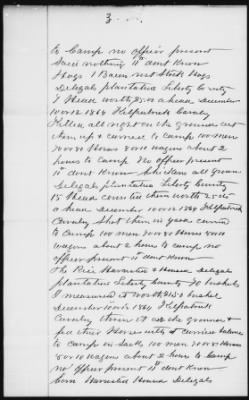 3
to Camp no officer present
Said nothing "I dont Know
Hogs 1 Barrow next Stock Hogs
Delegals plantation Liberty County
7 Head worth $5.00 a head December
10 or 12 1864 Kilpatricks Cavalry
Killed all right on the grounds cut
them up & carried to Camp 100 men
70 or 80 Horses 8 or 10 wagons about 2
hours to Camp No officer present
"I dont Know Chickens all grown
Delegals plantation Liberty County
15 Head counted them worth 25 cts
a head December 10 or 12 1864 Kilpatricks
Cavalry Shot them in yard carried
to Camp 100 men 70 or 80 Horses 8 or 10
wagons about 2 hours to camp no
officer present "I dont Know
The Rice Harvested & Housed Delegals
plantation Liberty County 70 bushels
I measured it worth $1.00 a bushel
December 10 or 12 1864 Kilpatricks
Cavalry threw it on the grounds &
fed their Horses with & carried balance
to Camp in Sacks 100 men 70 or 80 Horses
8 or 10 wagons about 2 hours to Camp
no officer present "I dont Know
Corn Harvested Housed Delegals